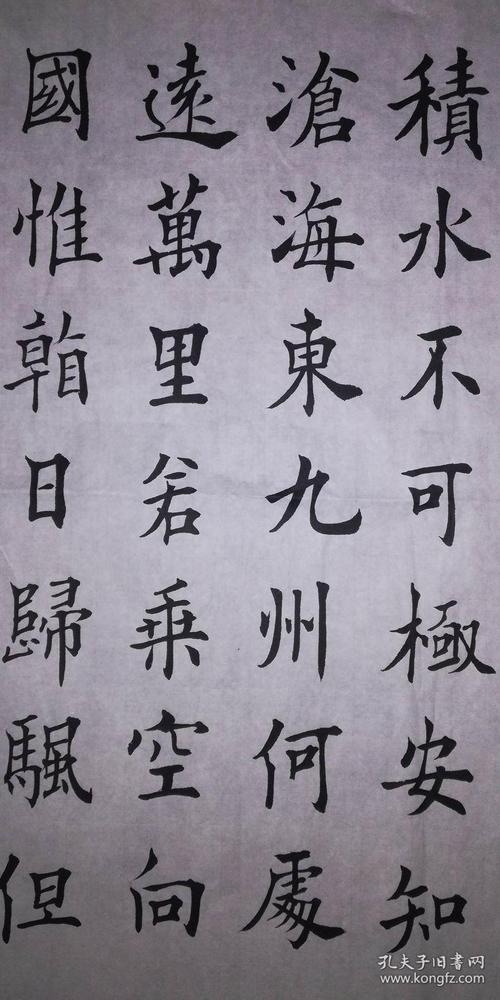 積水不可極安知
滄海東九州何處
遠萬里若乗空向
國惟看日歸颿但
孔夫子旧书网
www.kongfz.com